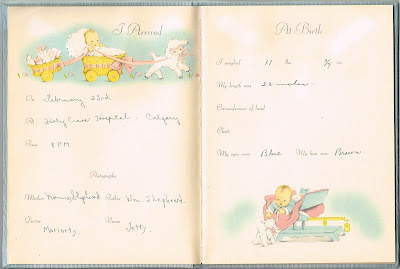 I Arrived
On February 23rd
At Holy Cross Hospital. Calgary
Time 8 P.M.
Autographs
Mother Norma Shepherd Father Wm. Shepheard.
Doctor Nurse Jetty.
Moriarty
At Birth
I weighed 11 lbs ozs.
My length was 22 inches
Circumference of head
Chest
My eyes were Blue My hair was Brown